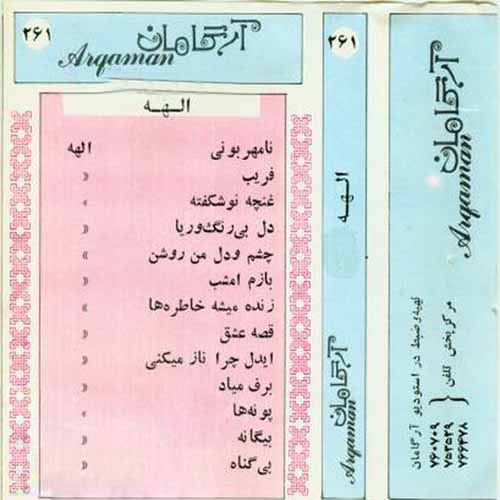 ۲۶۱
آرگامان
Arqaman
الهه
نامهربونی الهه
فریب »
غنچه نوشکفته »
دل بی‌رنگ‌وریا »
چشم ودل من روشن »
بازم امشب »
زنده میشه خاطره‌ها »
قصه عشق »
ایدل چرا ناز میکنی »
برف میاد »
پونه‌ها »
بیگانه »
بی‌گناه »
۲۶۱
الهه
آرگامان
Arqaman
آرگامان
Arqaman
تهیه‌وضبط در استودیو آرگامان
مرکزپخش تلفن
۷۶۰۷۰۹
۷۵۳۵۲۹
۷۶۶۴۷۸